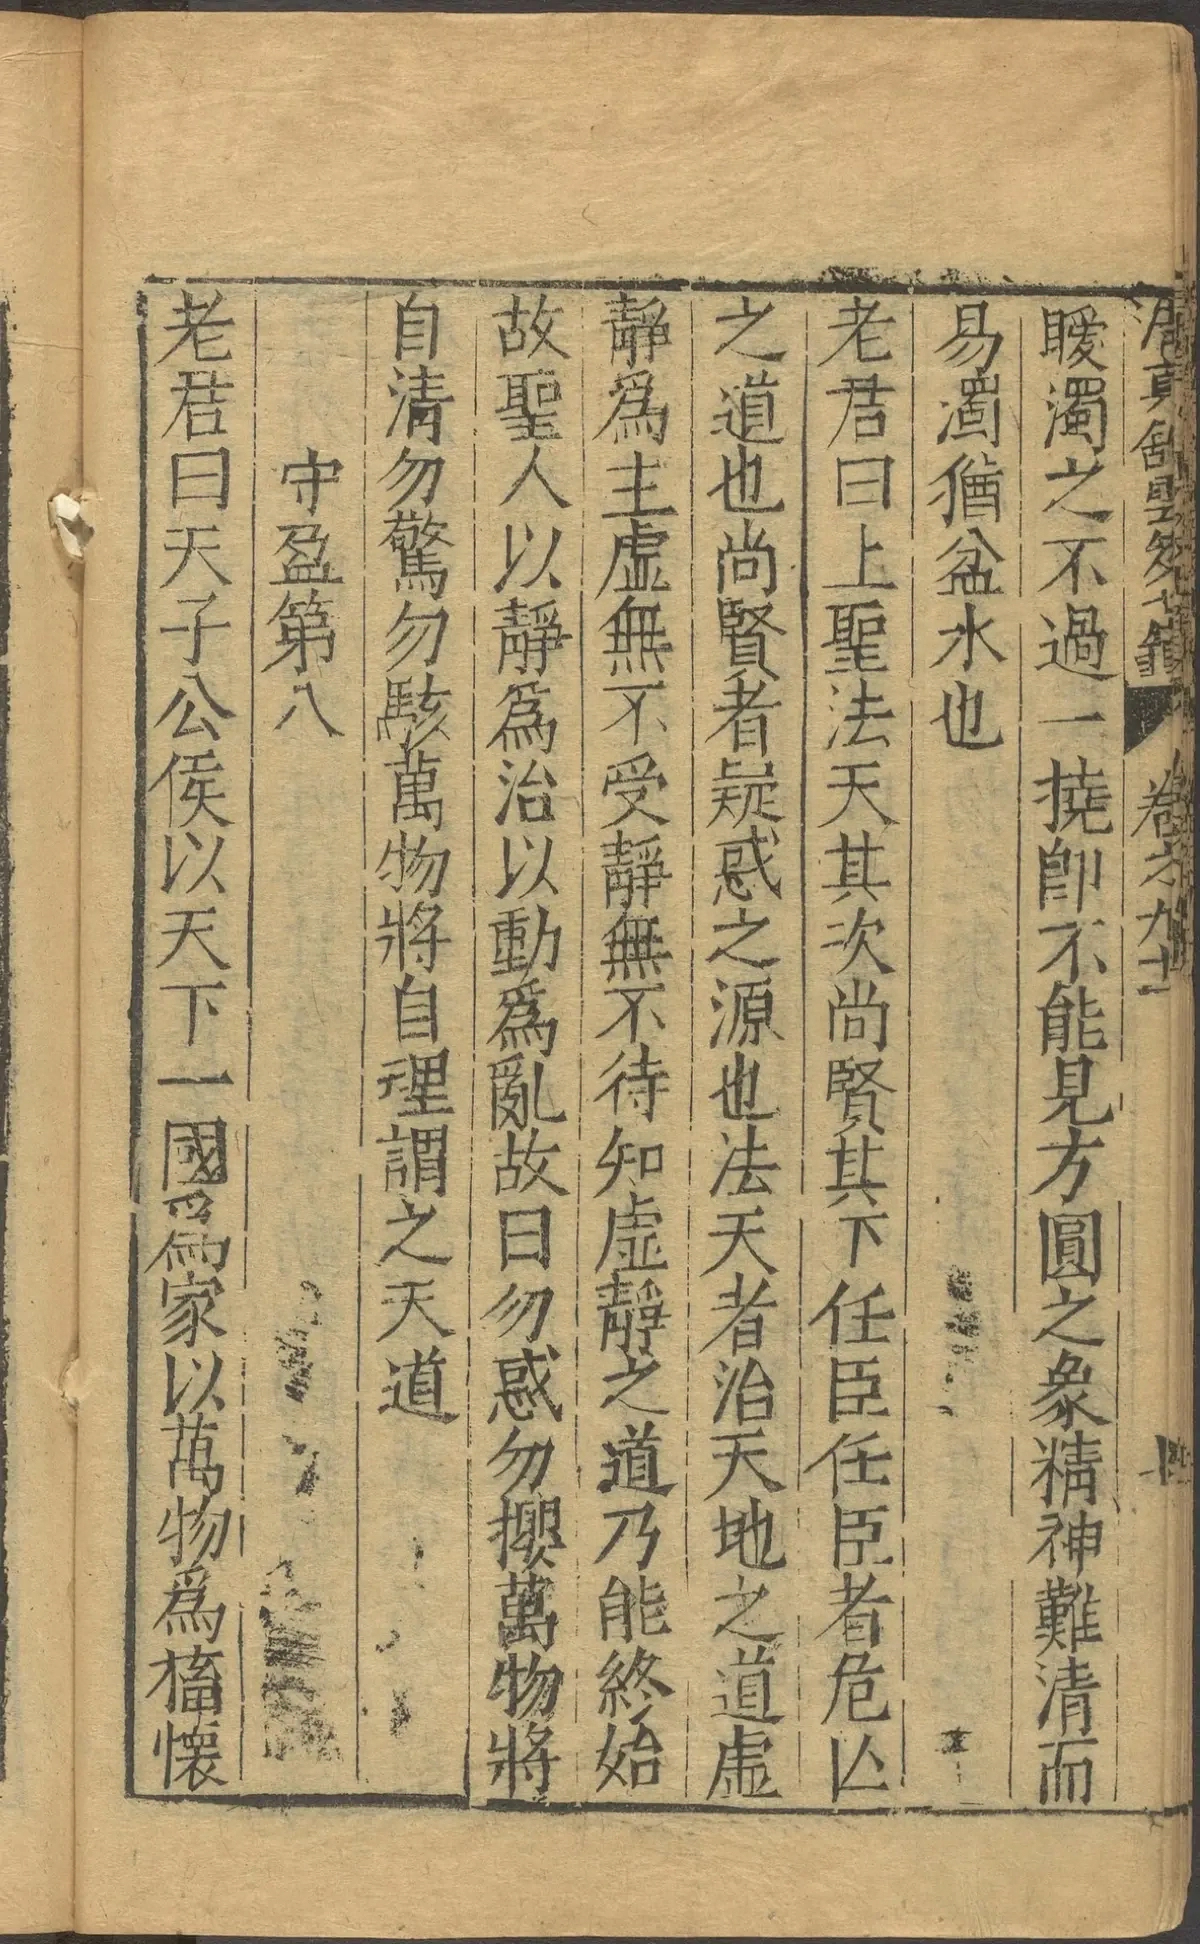 卷之九十一
曖濁之不過一撓卽不能見方圓之象精神難清而
易濁猶盆水也
老君曰上聖法天其次尚賢其下任臣任臣者危亾
之道也尚賢者疑惑之源也法天者治天地之道虛
靜爲主虛無不受靜無不待知虛靜之道乃能終始
故聖人以靜爲治以動爲亂故曰勿惑勿攖萬物將
自清勿驚勿駭萬物將自理謂之天道
守盈第八
老君曰天子公侯以天下一國爲家以萬物爲稸懷